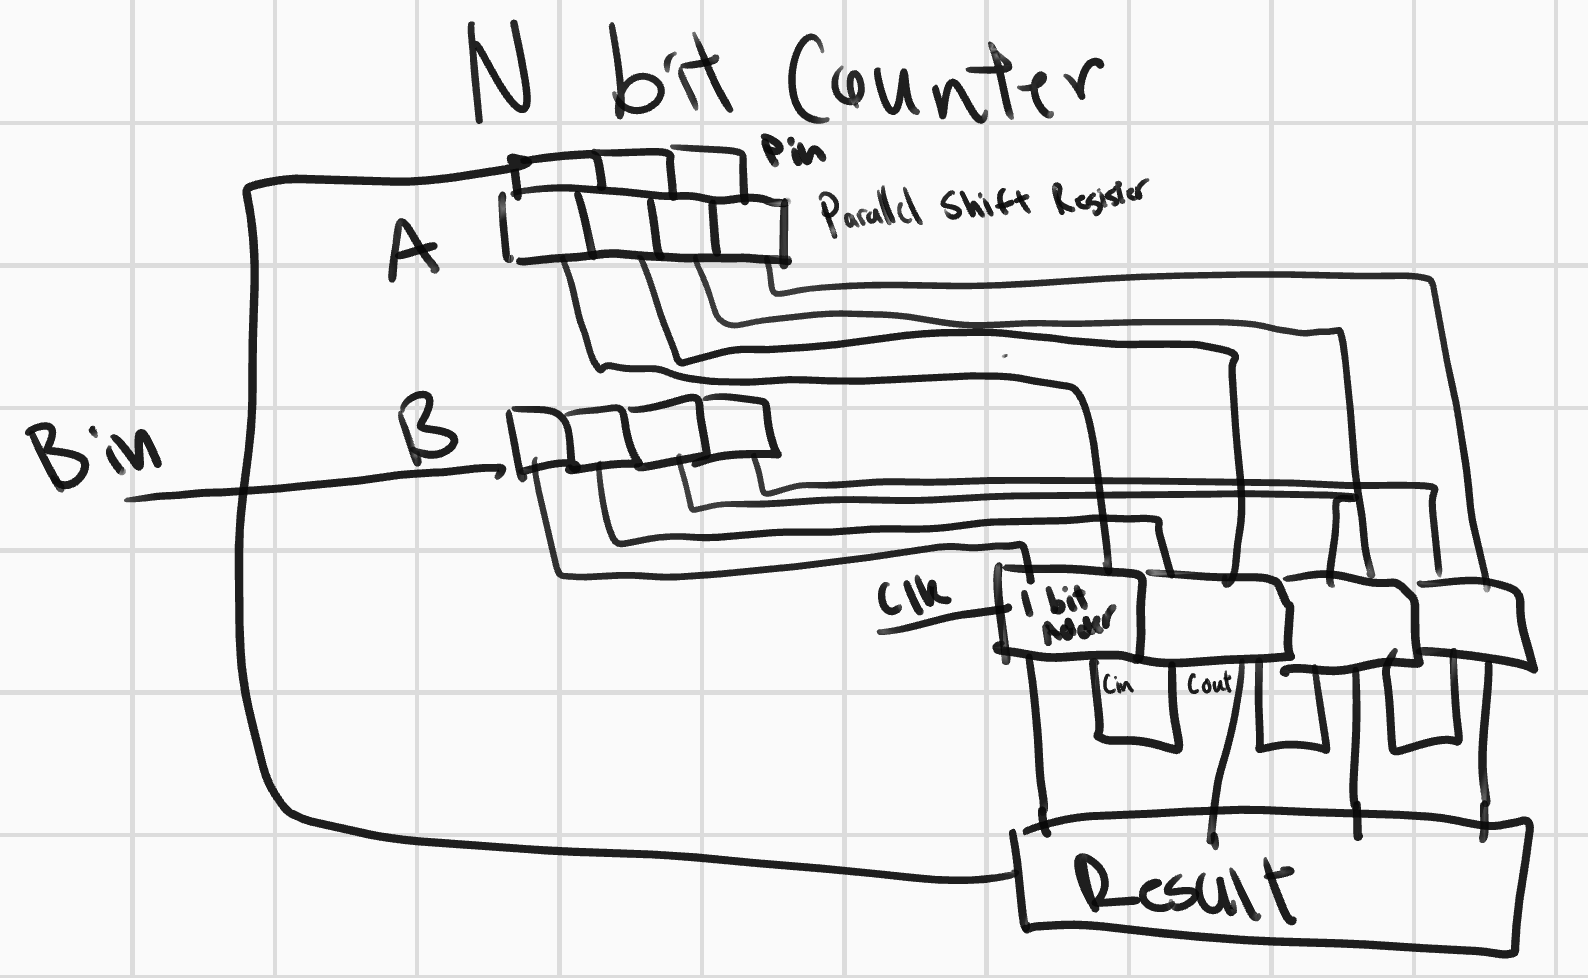 N bit Counter
Pin
Parallel Shift Register
A
B
Bin
Clk
1 bit
Adder
Cin
Cout
Result